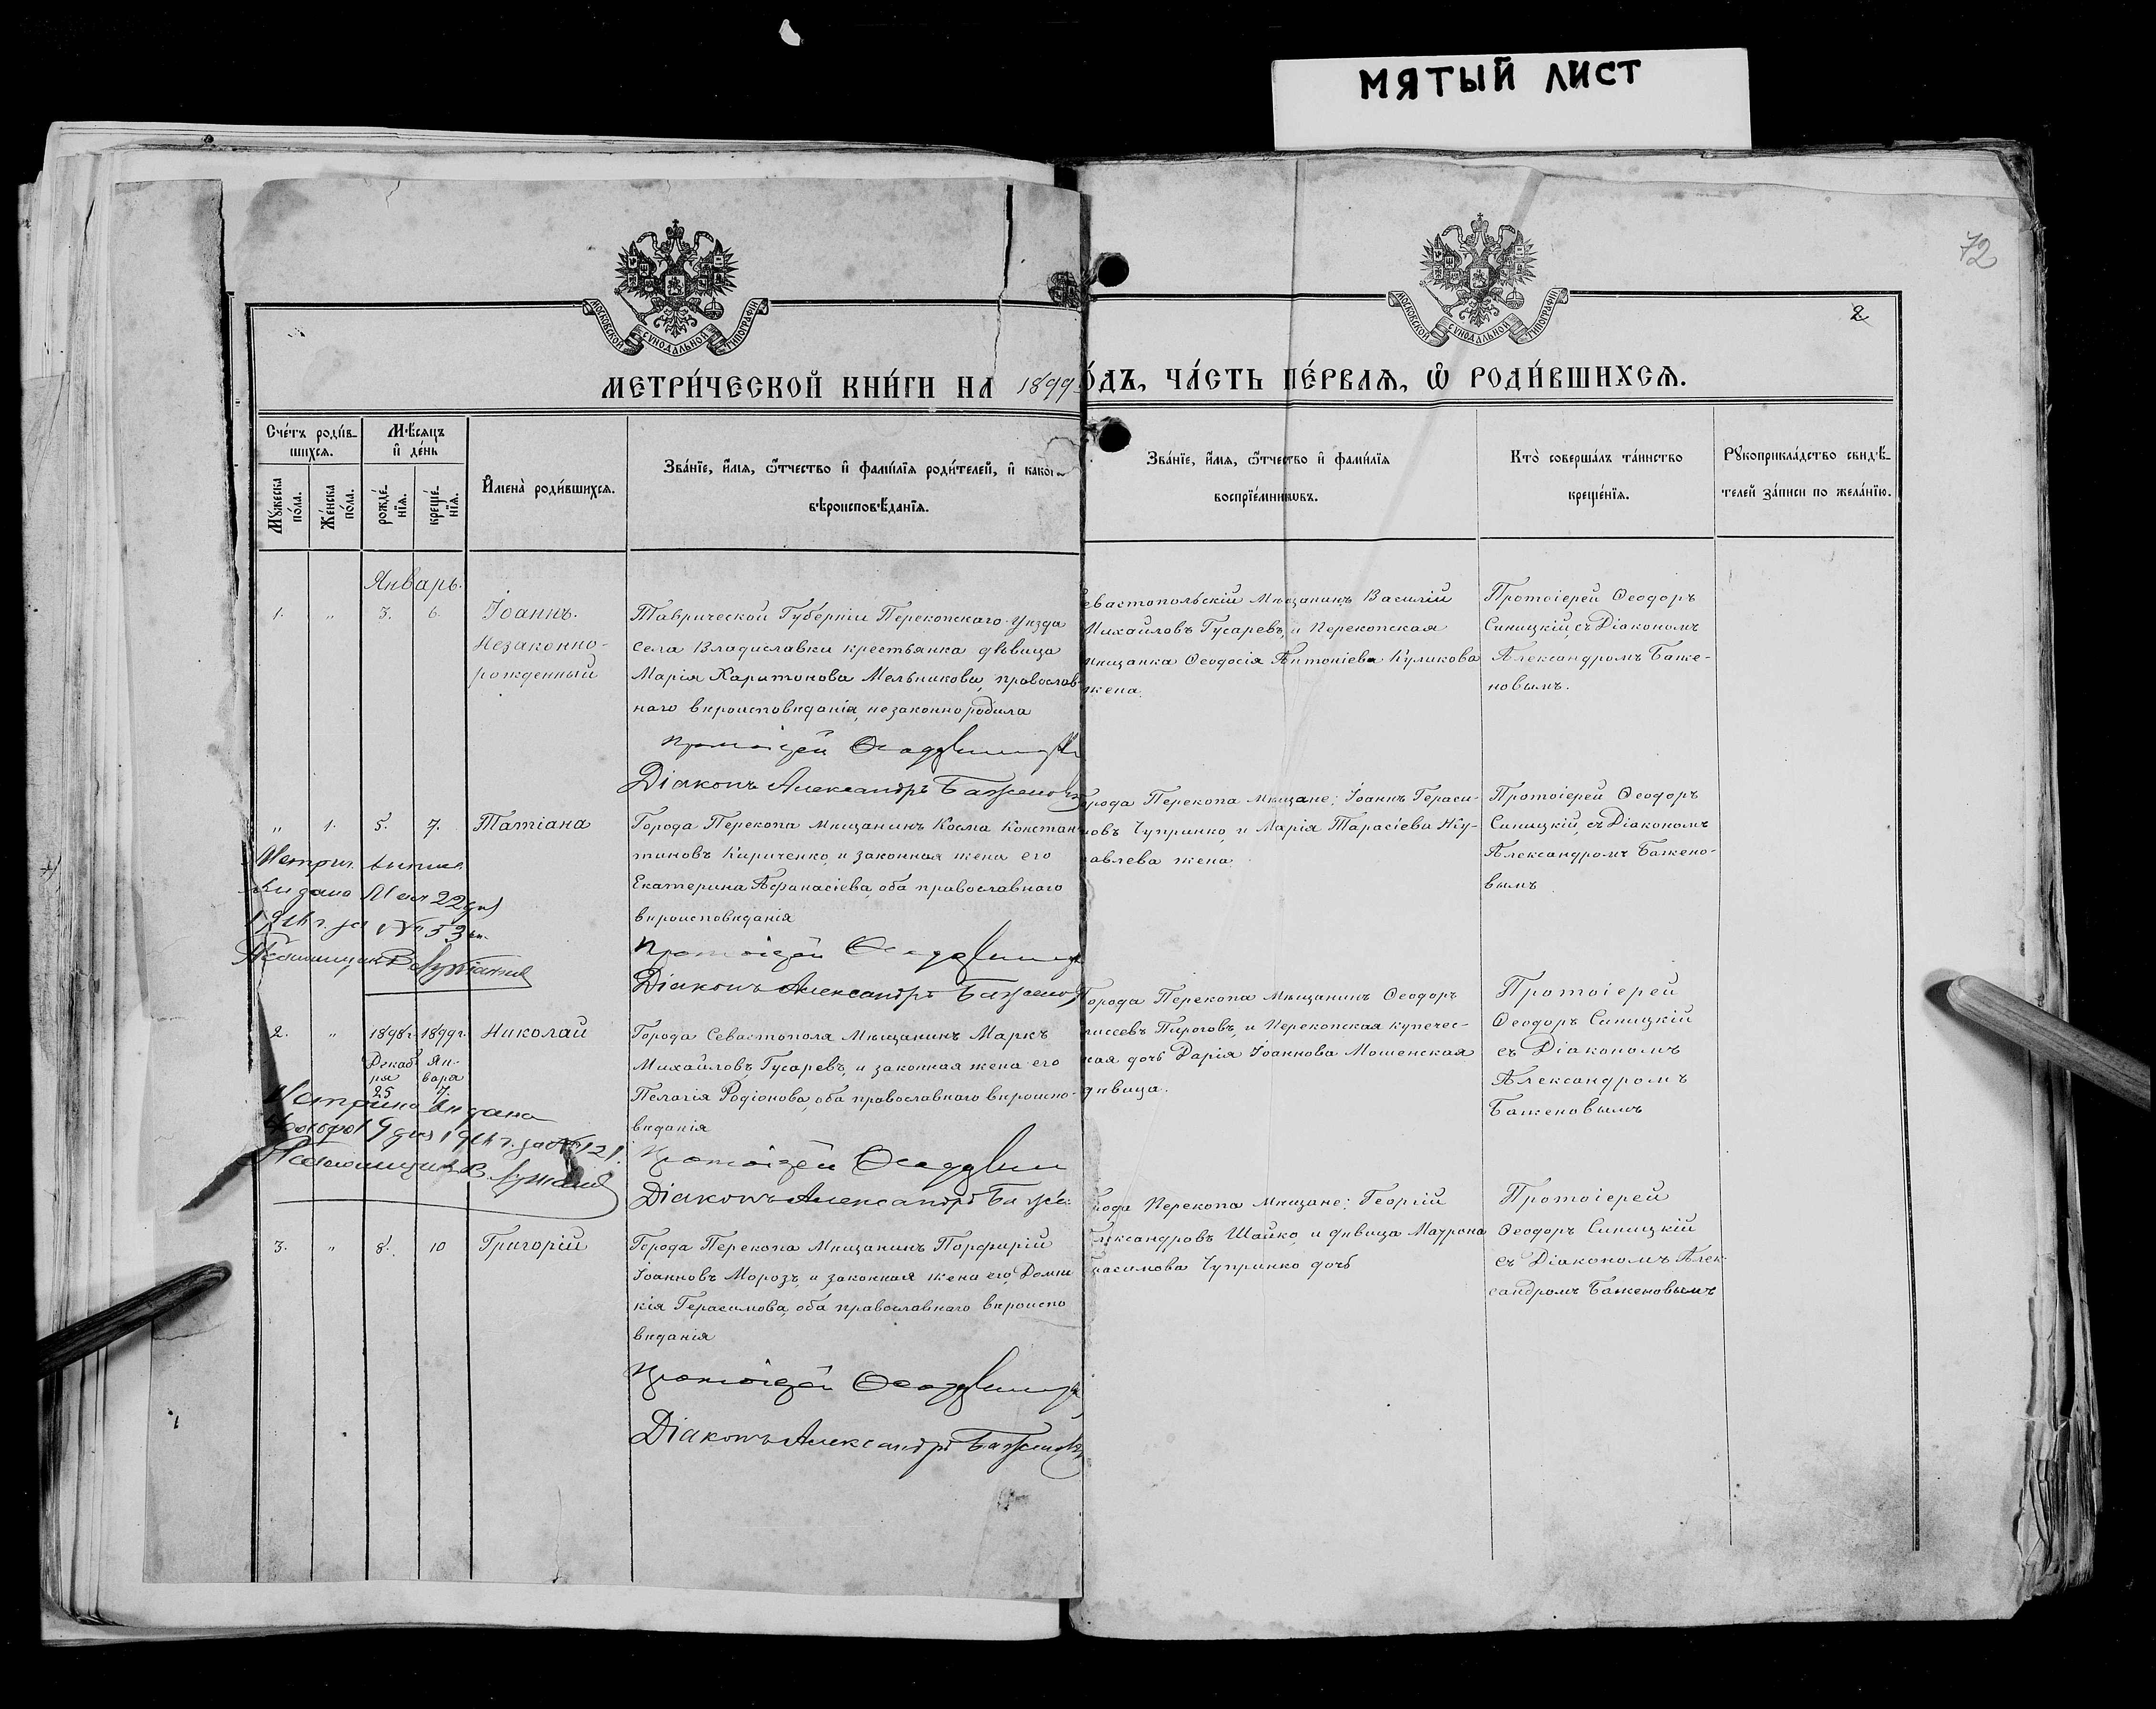 МЯТЫЙ ЛИСТ
72
2
МОСКОВСКОЙ СѴНОДАЛЬНОЙ ТИПОГРАФІИ
МОСКОВСКОЙ СѴНОДАЛЬНОЙ ТИПОГРАФІИ
МЕТРИ́ЧЕСКОЙ КНИ́ГИ НА 1899
ÓДЪ, ЧА́СТЬ ПЕ́РВАѦ, Ѡ РОДИ́ВШИХСѦ.
Сче́тъ роди́в-
шихсѧ.
Мѣ́сѧцъ
и҆ де́нь
Мꙋ́жеска
по́ла.
Же́нска
по́ла.
рожде́-
нїѧ.
креще́-
нїѧ.
И҆мена̀ роди́вшихсѧ.
Зва́нїе, и҆́мѧ, ѻ҆́тчество и҆ фамѝлїѧ роди́телей, и҆ како
вѣроисповѣ́данїѧ.
Зва́нїе, и҆́мѧ, ѻ҆́тчество и҆ фами́лїѧ
воспрїе́мникѡвъ.
Кто̀ соверша́лъ та́инство
креще́нїѧ.
Рꙋкоприкла́дство свидѣ́-
телей за́писи по жела́нїю.
Январь.
1. " 3. 6. Іоаннъ.
Незаконно-
рожденный
Таврической Губерніи Перекопскаго Уѣзда
села Владиславки крестьянка дѣвица
Марія Харитонова Мельникова, православ-
наго вѣроисповѣданія, незаконно родила
Протоіерей Ѳеодоръ Синицкій
Діаконъ Александръ Баженовъ
евастопольскій Мѣщанинъ Василій
Михайловъ Гусаревъ, и Перекопская
мѣщанка Ѳеодосія Антоніева Куликова
жена.
Протоіерей Ѳеодоръ
Синицкій, съ Діакономъ
Александромъ Баже-
новымъ.
" 1. 5. 7. Татіана
Города Перекопа Мѣщанинъ Косма Констан-
тиновъ Кириченко, и законная жена его
Екатерина Аѳанасіева, оба православнаго
вѣроисповѣданія
Протоіерей Ѳеодоръ
Діаконъ Александръ Баженов
Метрич. выпись
выдана Мая 22 дня
за № 53
Псаломщикъ В.
орода Перекопа Мѣщане: Іоаннъ Гераси-
мовъ Чупринко, и Марія Тарасіева Жу-
равлева жена
Протоіерей Ѳеодоръ
Синицкій, съ Діакономъ
Александромъ Бажено-
вымъ
2. " 1898 г. 1899 г. Николай
Декаб- Ян-
ря варя
25 7.
Города Севастополя Мѣщанинъ Маркъ
Михайловъ Гусаревъ, и законная жена его
Пелагія Родіонова, оба православнаго вѣроиспо-
вѣданія
Протоіерей Ѳеодоръ
Діаконъ Александръ Баже
Метрика выдана
9 дня за № 121.
Псаломщикъ В.
Города Перекопа Мѣщанинъ Ѳеодоръ
исеевъ Пироговъ, и Перекопская купечес-
кая дочь Дарія Іоаннова Мошенская
дѣвица.
Протоіерей
Ѳеодоръ Синицкій
съ Діакономъ
Александромъ
Баженовымъ
3. " 8. 10 Григорій
Города Перекопа Мѣщанинъ Порфирій
Іоанновъ Морозъ, и законная жена его Домни-
кія Герасимова, оба православнаго вѣроиспо
вѣданія
Протоіерей Ѳеодоръ
Діаконъ Александръ Баженовъ
рода Перекопа Мѣщане: Георгій
Александровъ Шайко, и дѣвица Матрона
расимова Чупринко дочь
Протоіерей
Ѳеодоръ Синицкій
съ Діакономъ Алек
сандромъ Баженовымъ